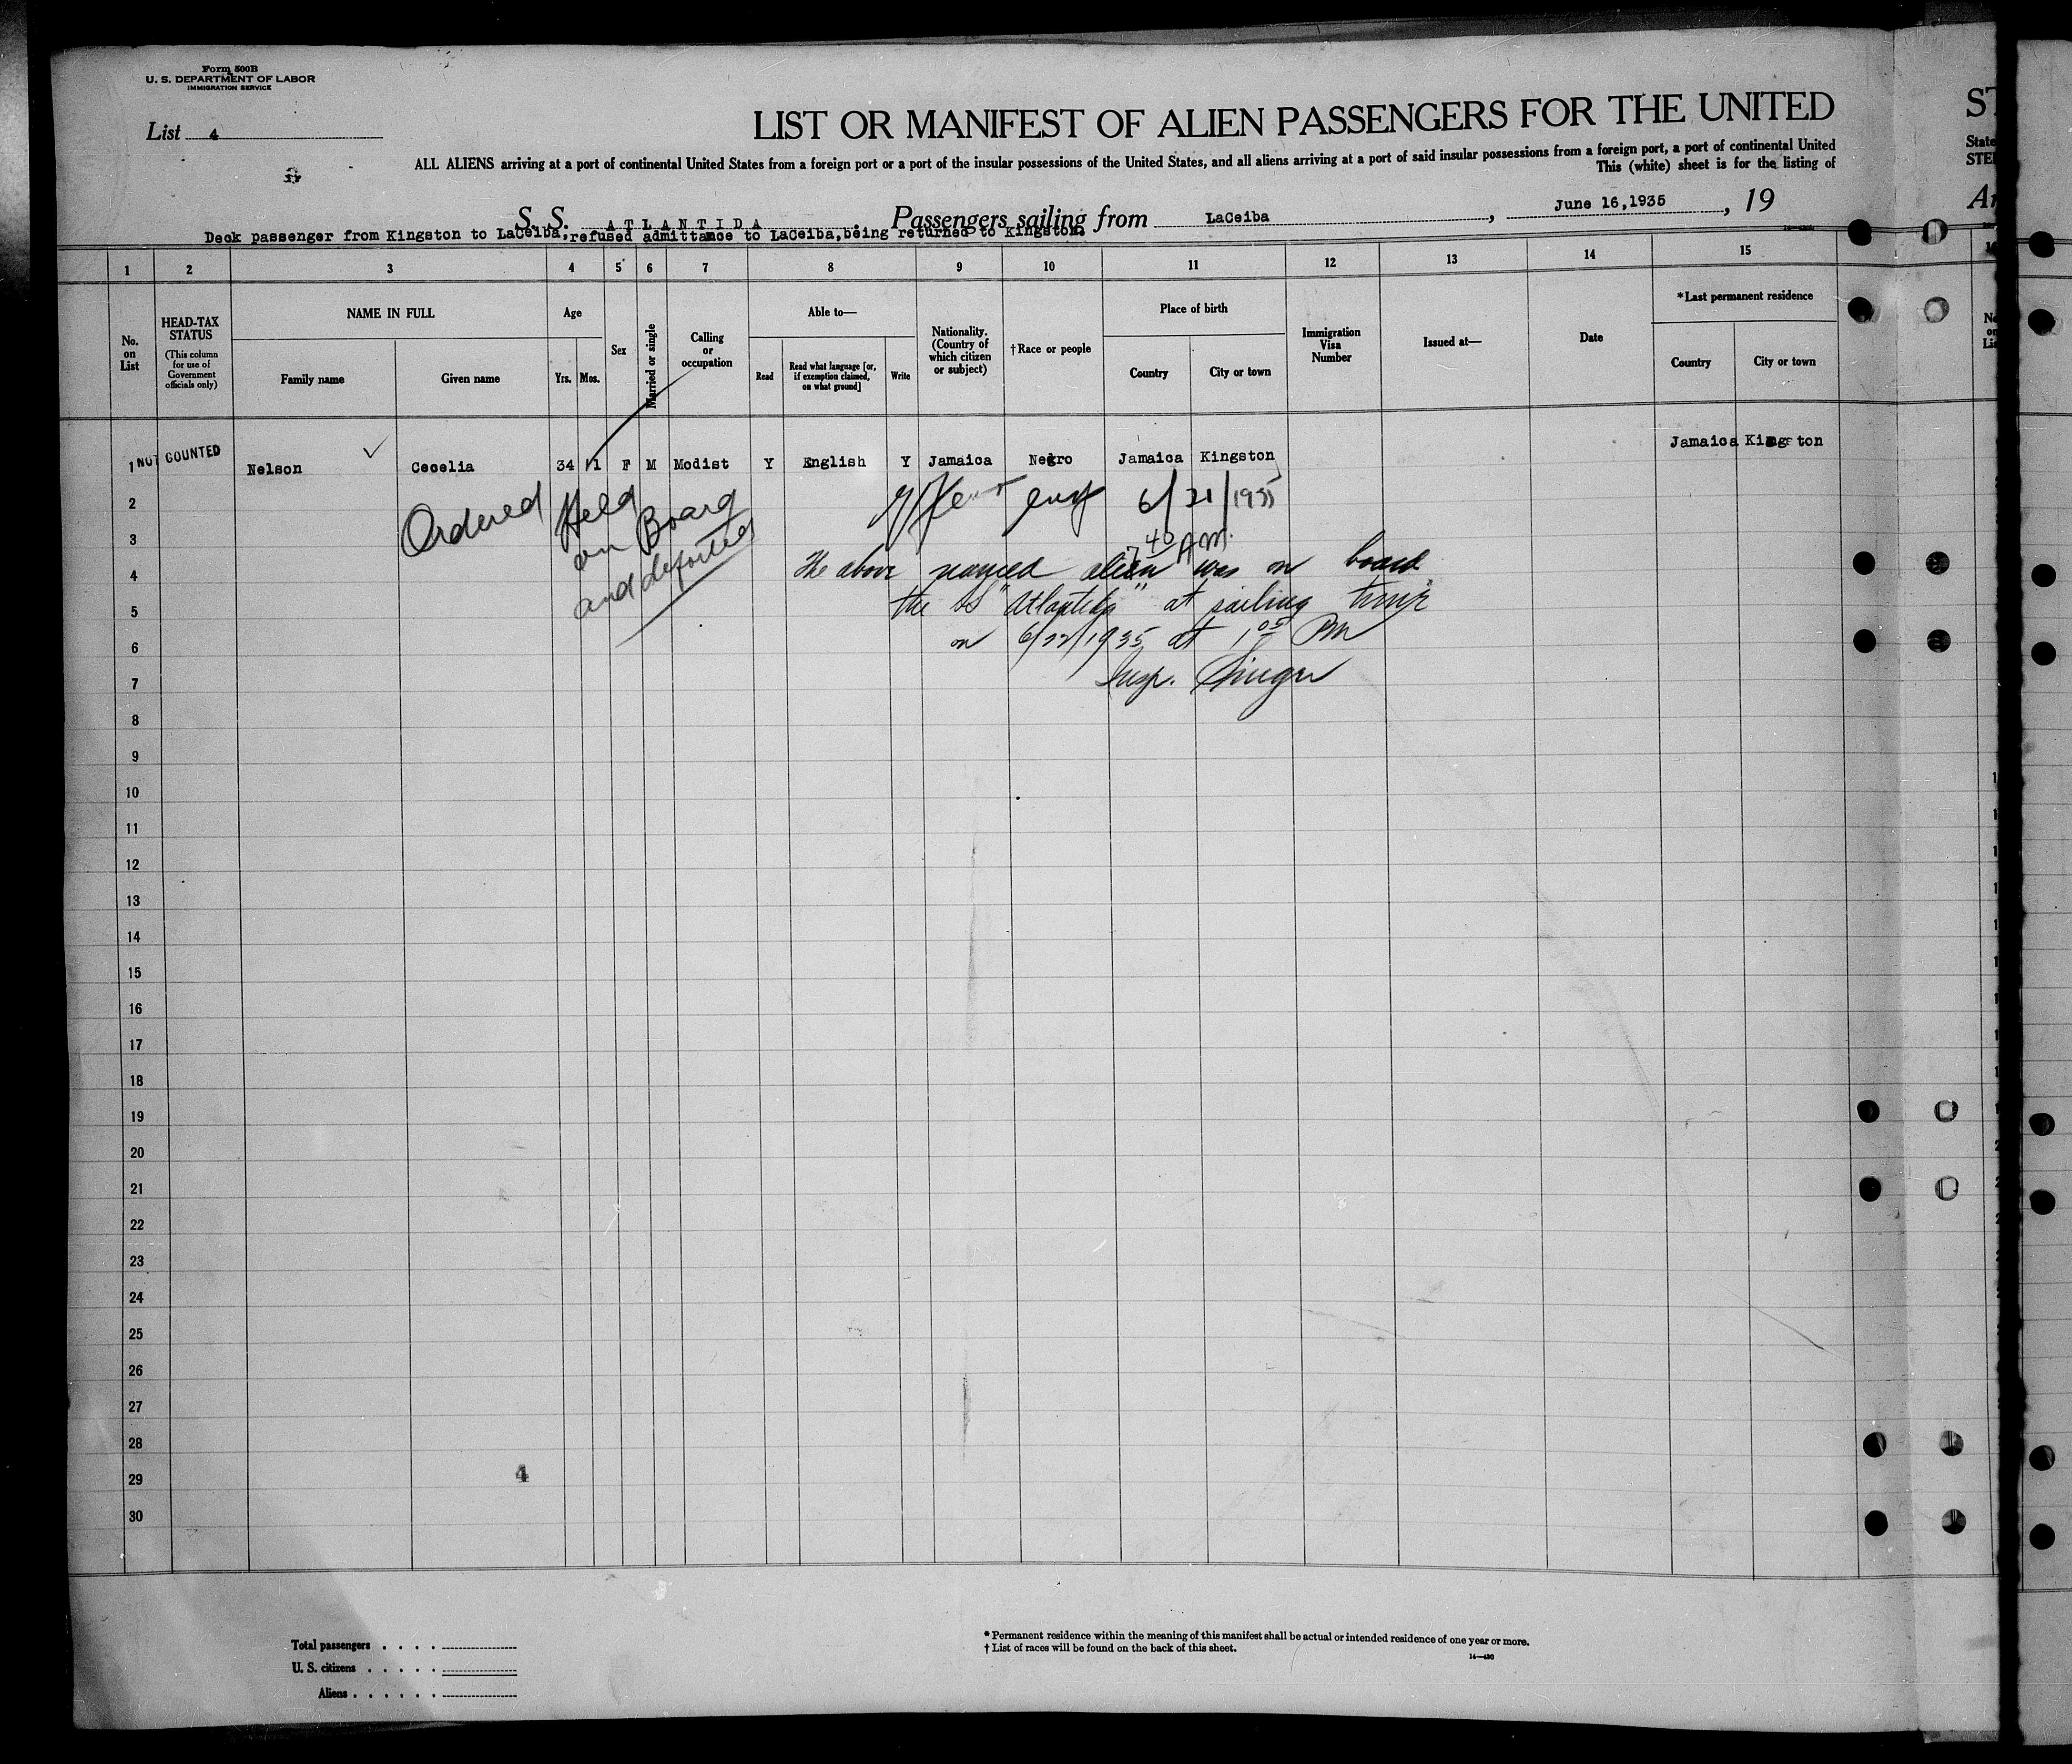 Form 500B
U. S. DEPARTMENT OF LABOR
IMMIGRATION SERVICE
List 4
3
LIST OR MANIFEST OF ALIEN PASSENGERS FOR THE UNITED
ST
ALL ALIENS arriving at a port of continental United States from a foreign port or a port of the insular possessions of the United States, and all aliens arriving at a port of said insular possessions from a foreign port, a port of continental United
State
This (white) sheet is for the listing of
STE
S. S. ATLANTIDA Passengers sailing from LaCeiba, June 16,1935, 19
Deck passenger from Kingston to LaCeiba,refused admittance to LaCeiba,being returned to Kingston.
1 2 3 4 5 6 7 8 9 10 11 12 13 14 15
No. on List
HEAD-TAX STATUS
(This column for use of Government officials only)
NAME IN FULL
Family name
Given name
Age
Yrs.
Mos.
Sex
Married or single
Calling or occupation
Able to—
Read
Read what language [or, if exemption claimed, on what ground]
Write
Nationality. (Country of which citizen or subject)
†Race or people
Place of birth
Country
City or town
Immigration Visa Number
Issued at—
Date
*Last permanent residence
Country
City or town
1 NOT COUNTED Nelson Cecelia 34 11 F M Modist Y English Y Jamaica Negro Jamaica Kingston Jamaica Kingston
2 Ordered Held 6/21/1935
on Board
3 and deported 7 40 AM.
4 The above named alien was on board
5 the SS "Atlantida" at sailing time
6 on 6/22/1935 at 1 05 PM
7 Insp. Singer
8
9
10
11
12
13
14
15
16
17
18
19
20
21
22
23
24
25
26
27
28
29
4
30
Total passengers . . . .
U. S. citizens . . . . .
Aliens . . . . . .
* Permanent residence within the meaning of this manifest shall be actual or intended residence of one year or more.
† List of races will be found on the back of this sheet.
14—430